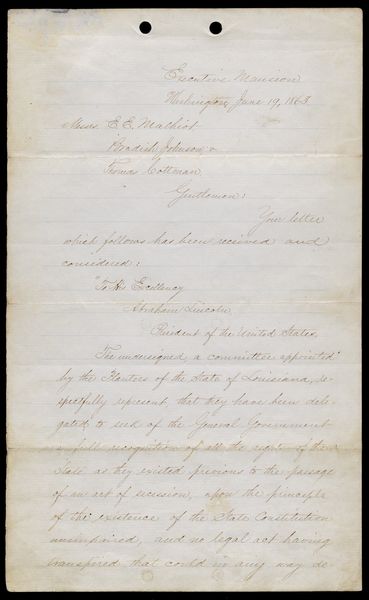 Executive Mansion
Washington, June 19, 1863.
Messrs E. E. Malhiot
Bradish Johnson &
Thomas Cottman
Gentlemen:
Your letter
which follows has been received and
considered:
"To His Excellency
Abraham Lincoln
President of the United States.
The undersigned, a committee appointed
by the Planters of the State of Louisiana, re-
spectfully represent that they have been dele-
gated to seek of the General Government
a full recognition of all the rights of the
State as they existed previous to the passage
of an act of secession, upon the principle
of the existence of the State Constitution
unimpaired, and no legal act having
transpired that could in any way de-